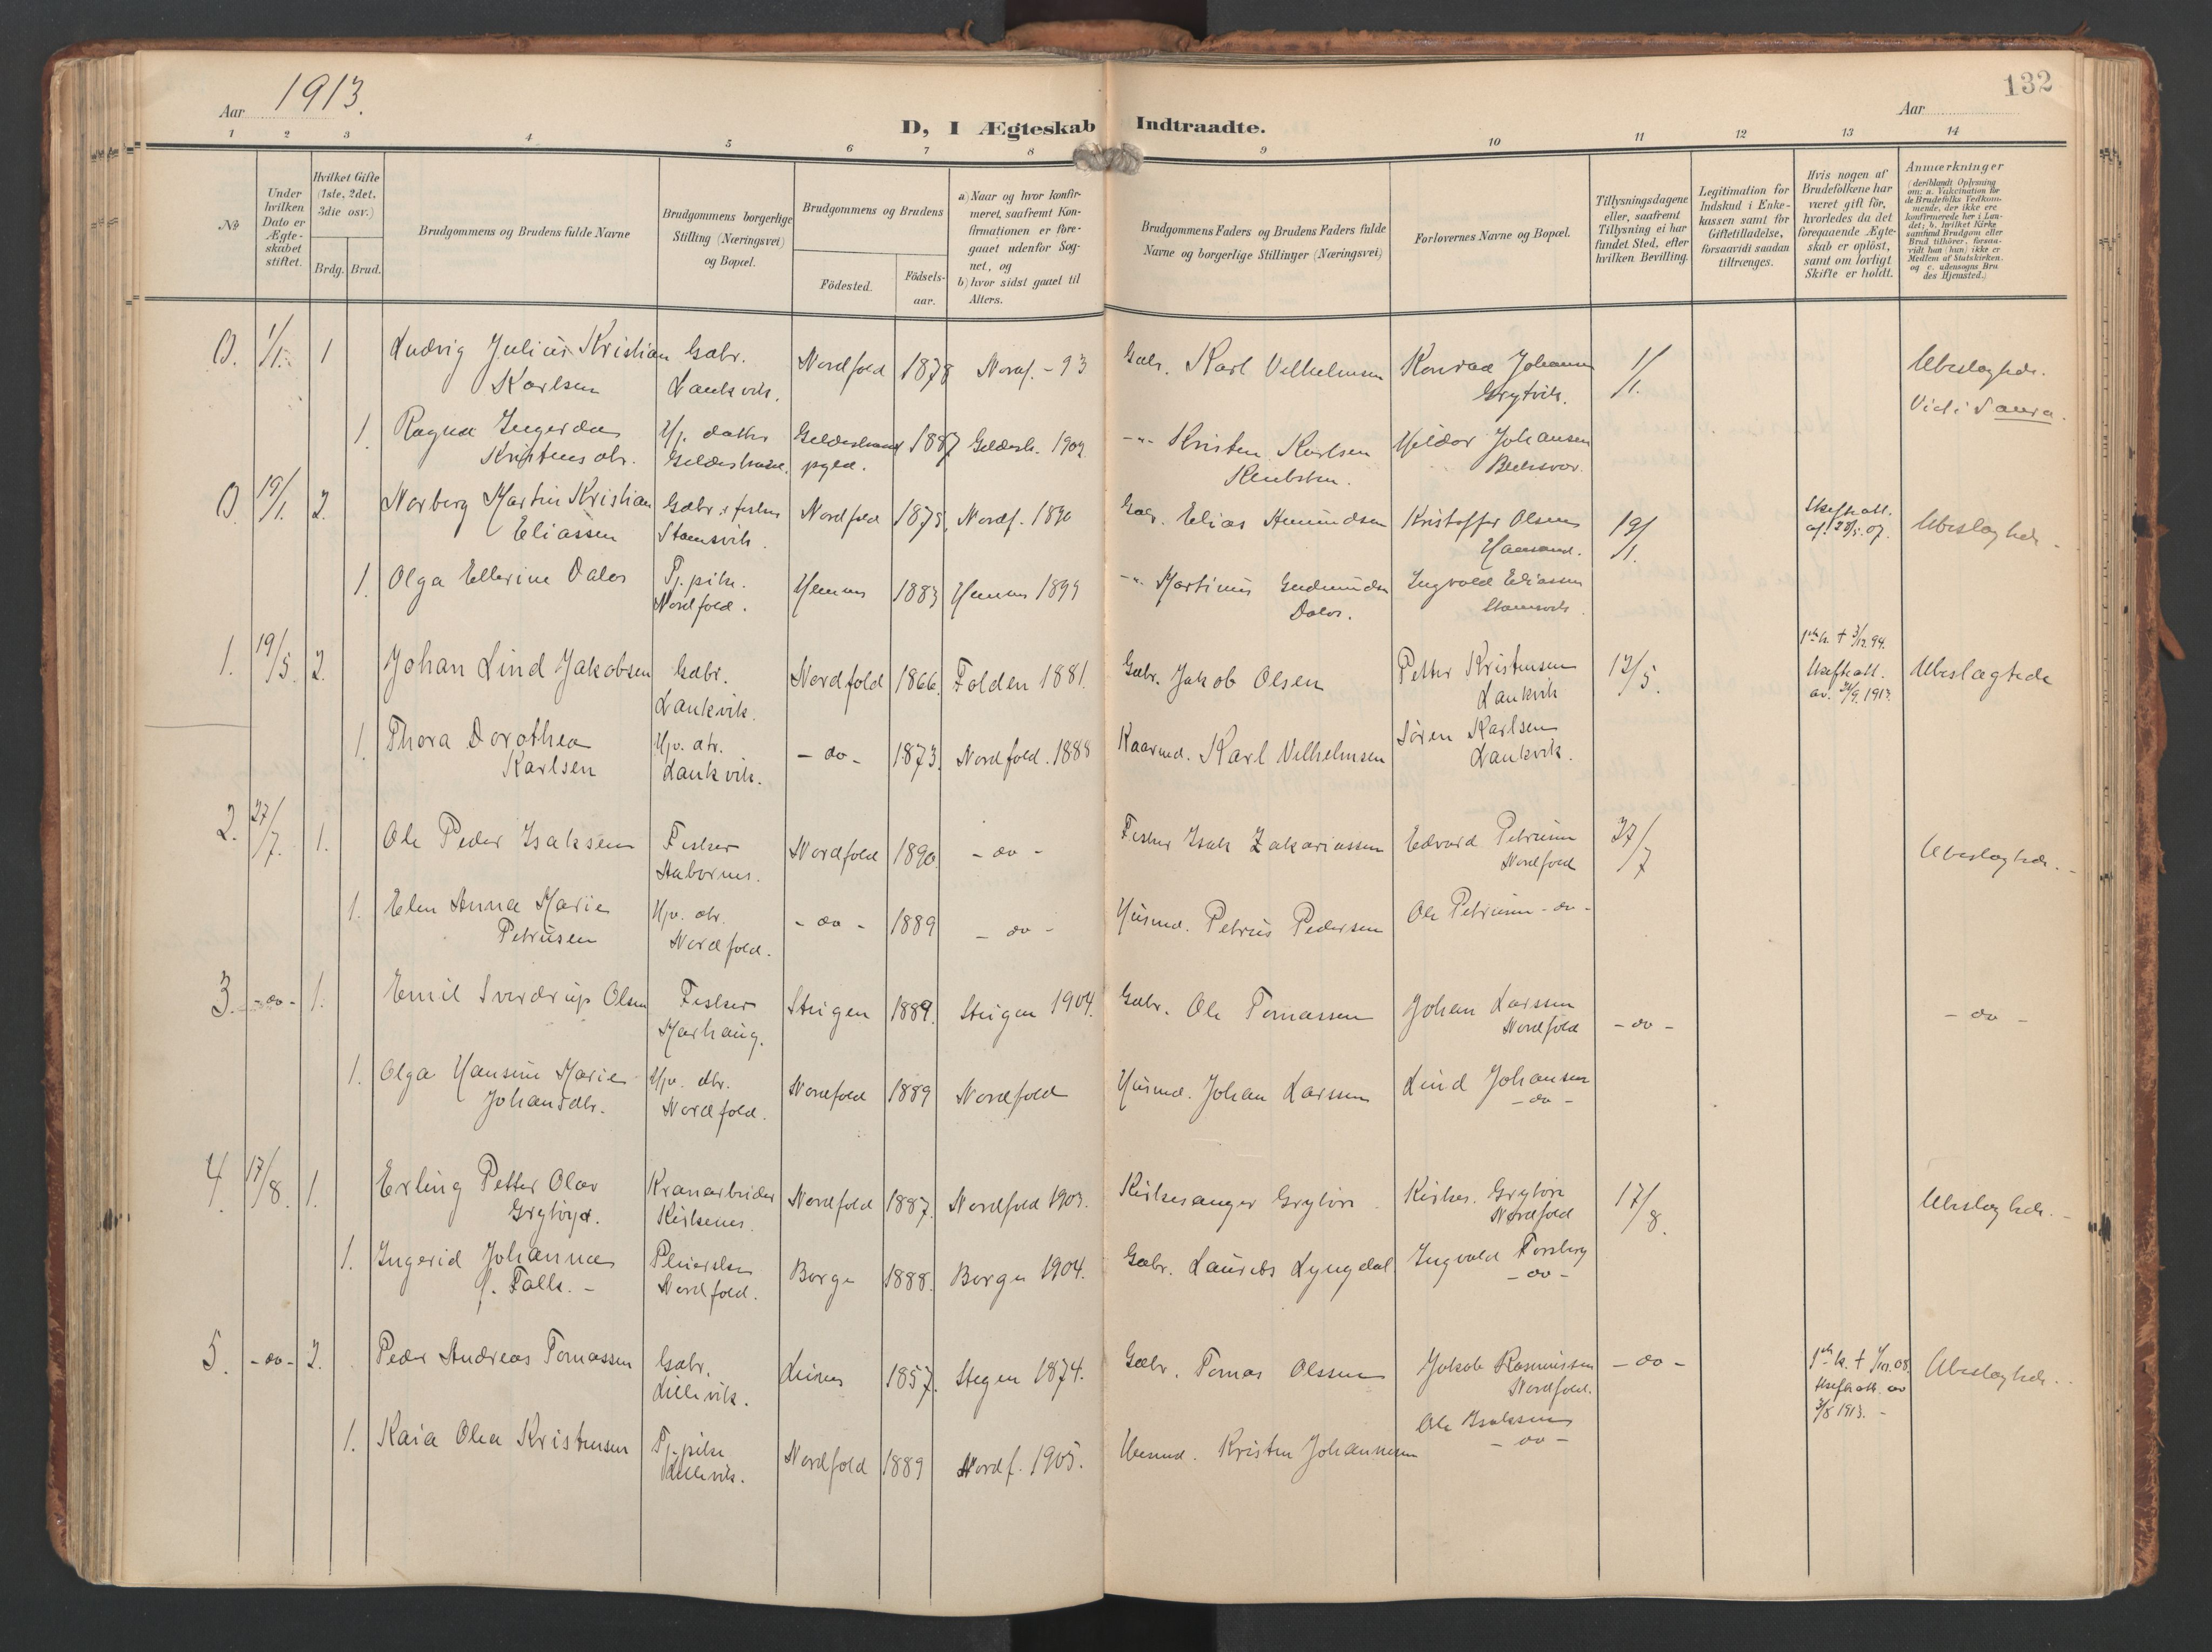 Aar 1913.
132
Aar
D, I Ægteskab Indtraadte.
1 2 3 4 5 6 7 8 9 10 11 12 13 14
No
Under hvilken Dato er Ægte-skabet stiftet.
Hvilket Gifte (1ste, 2det, 3die osv.)
Brdg. Brud.
Brudgommens og Brudens fulde Navne
Brudgommens borgerlige Stilling (Næringsvei) og Bopæl.
Brudgommens og Brudens
Födested.
Födsels-aar.
a) Naar og hvor konfir-meret, saafremt Kon-firmationen er fore-gaaet udenfor Sog-net, og
b) hvor sidst gaaet til Alters.
Brudgommens Faders og Brudens Faders fulde Navne og borgerlige Stillinger (Næringsvei)
Forlovernes Navne og Bopæl.
Tillysningsdagene eller, saafremt Tillysning ei har fundet Sted, efter hvilken Bevilling.
Legitimation for Indskud i Enke-kassen samt for Giftetilladelse, forsaavidt saadan tiltrænges.
Hvis nogen af Brudefolkene har været gift för, hvorledes da det foregaaende Ægte-skab er oplöst, samt om lovligt Skifte er holdt.
Anmærkninger (deriblandt Oplysning om: a. Vakcination for de Brudefolks Vedkom-mende, der ikke ere konfirmerede her i Lan-det; b. hvilket Kirke-samfund Brudgom eller Brud tilhörer, forsaa-vidt han (hun) ikke er Medlem af Statskirken, og c. udensogns Bru-des Hjemsted.)
0. 1/1. 1 Ludvig Julius Kristian Gbr. Nordfold 1878 Nordf. - 93 Gbr. Karl Vilhelmsen Konrad Johansen 1/1. Ubeslægtede.
Karlsen Lankvik. Grytvik.
Vidi Saura.
1. Ragna Ingerda Hj. datter Gildeskaal 1887 Gildesk. 1902 -"- Kristen Karlsen Hildor Johansen
Kristensdtr. Gildeskaal. pgld.
0. 19/1. 2. Norberg Martin Kristian Gbr. & fisker Nordfold 1875, Nordf. 1890 Gbr. Elias Amundsen Kristoffer Olsen 19/1. Skifteatt. Ubeslægtede.
Eliassen Stamsvik.
1. Olga Ellerine Dalos Tj.pike 1883 1899 -"- Martinus Gudmundsen Ingvald Eliassen
Nordfold. Dalos. Stamsvik.
1. 19/5. 2. Johan Lind Jakobsen Gbr. Nordfold 1866. Folden 1881. Gbr. Jakob Olsen Petter Kristensen 12/5. 1ste h. † 3/12 94. Ubeslægtede
Lankvik. Lankvik Skifteatt. av. 24/9. 1912.
1. Thora Dorothea Hjv. dtr. - do - 1873. Nordfold. 1888 Kaarmd. Karl Vilhelmsen Sören Karlsen
Karlsen Lankvik. Lankvik.
2. 27/7. 1. Ole Peder Isaksen Fisker Nordfold 1890. - do - Fisker Isak Zakariassen Edvard Petrusen 27/7 Ubeslægtede.
Nordfold
1. Elen Anna Marie Hjv. dtr. - do - 1889 - do - Husmd. Petrus Pedersen Ole Petrusen - do -
Petrusen Nordfold.
3. - do - 1. Emil Sverdrup Olsen Fisker Steigen 1889. Steigen 1904. Gbr. Ole Tomassen Johan Larssen - do - - do -
Marhaug. Nordfold
1. Olga Hansine Marie Hjv. dtr. Nordfold 1889 Nordfold Husmd. Johan Larssen Lind Johansen
Johansdtr. Nordfold. - do -
4. 17/8. 1. Erling Petter Olav Kranarbeider Nordfold 1887. Nordfold 1903. Kirkesanger Grytöir Kirkes. Grytöir 17/8. Ubeslægtede.
Grytöyr. Kirkenes. Nordfold
1. Ingerid Johanna Pleierske Borge 1888. Borge 1904. Gbr. Laurits Lyngdal Ingvald Forsberg
f. Falk. - Nordfold. - do -
5. - do - 2. Peder Andreas Tomassen Gbr. Leines 1857. Stegen 1874. Gbr. Tomas Olssen Jakob Rasmussen - do - 1ste h. † 1/12. 08. Ubeslægtede.
Lillevik. Nordfold. Skifteatt. av 3/8 1913. -
1. Kaia Olea Kristensen Tj.pike Nordfold 1889 Nordf. 1905. Husmd. Kristen Johannessen Ole Isaksen
Lillevik. - do -